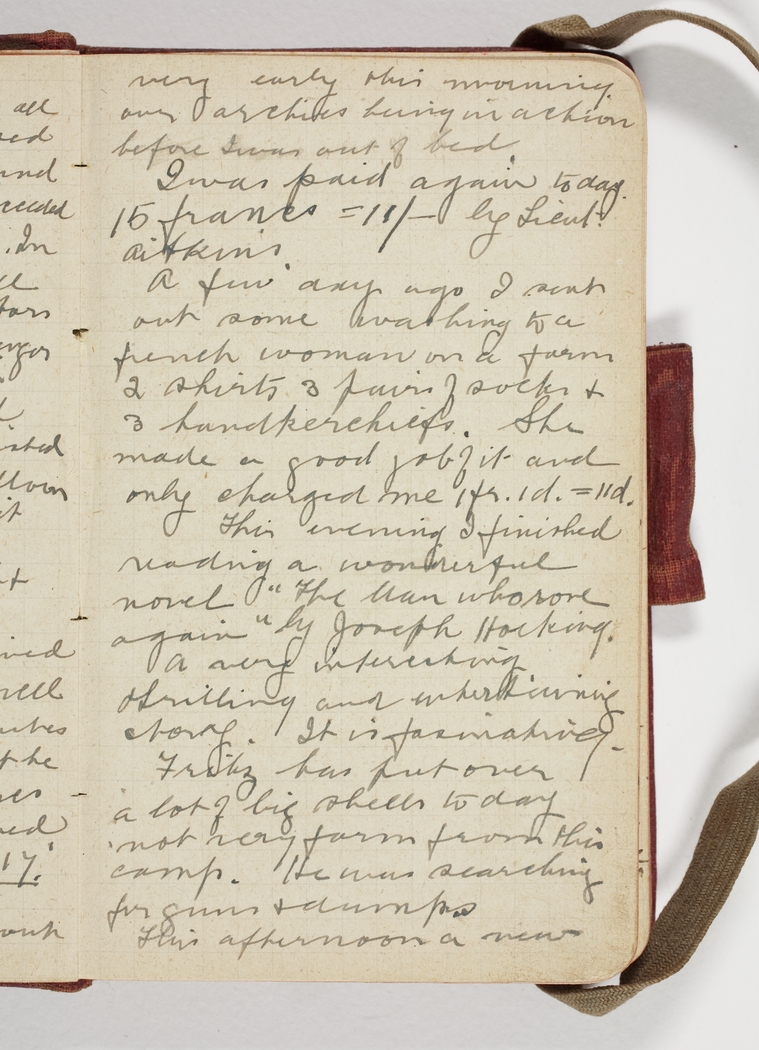 all
ned
und
needed
. In
ll
tors
enger
isted
Moon
it
+
ived
well
utes
the
nes
ned
17.
ouk
very early this morning
our archies being in action
before I was out of bed
I was paid again today
15 francs = 11/- by Lieut.
Aitkins
A few day ago I sent
out some washing to a
french woman on a farm
2 shirts 3 pairs of socks +
3 handkerchiefs. She
made a good job of it and
only charged me 1fr. 1d. = 11d.
This evening I finished
reading a wonderful
novel "The Man who rose
again" by Joseph Hocking.
A very interesting
thrilling and entertaining
story. It is fasinating.
Fritz has put over
a lot of big shells today
not very farm from this
camp. He was searching
for guns + dumps
This afternoon a new